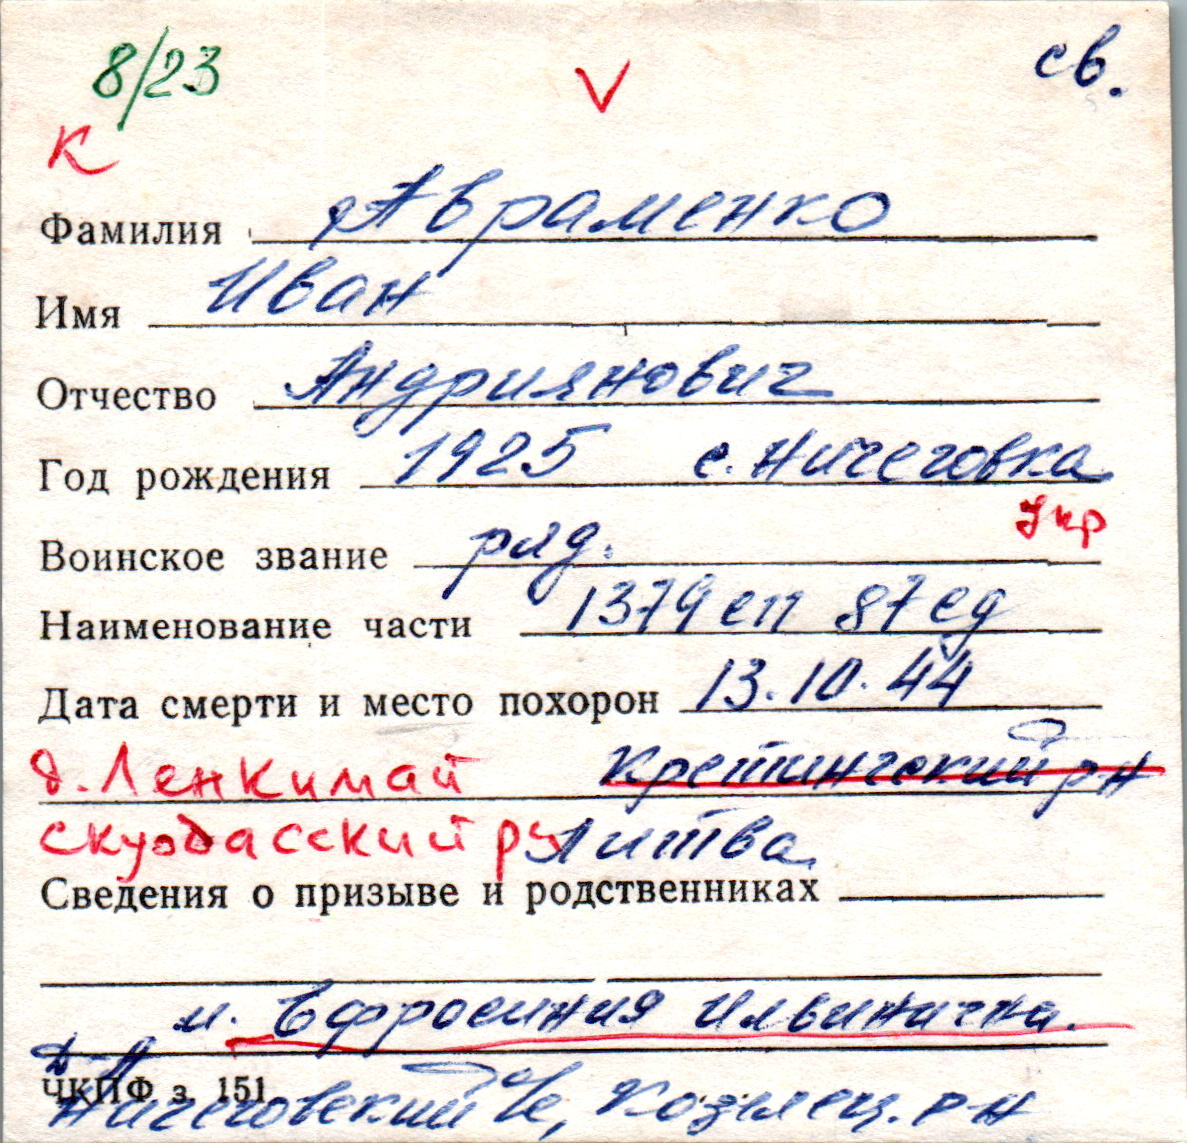 8/23 V св.
К
Фамилия Авраменко
Имя Иван
Отчество Андриянович
Год рождения 1925 с. Ничеговка
Укр
Воинское звание ряд.
Наименование части 1379 сп 87 сд
Дата смерти и место похорон 13.10.44
д. Ленкимай Кретингский р-н
скуодасский р-н Литва
Сведения о призыве и родственниках
м. Ефросиния Ильинична.
ЧКПФ з. 151
Ничеговский с/с, Козелец. р-н